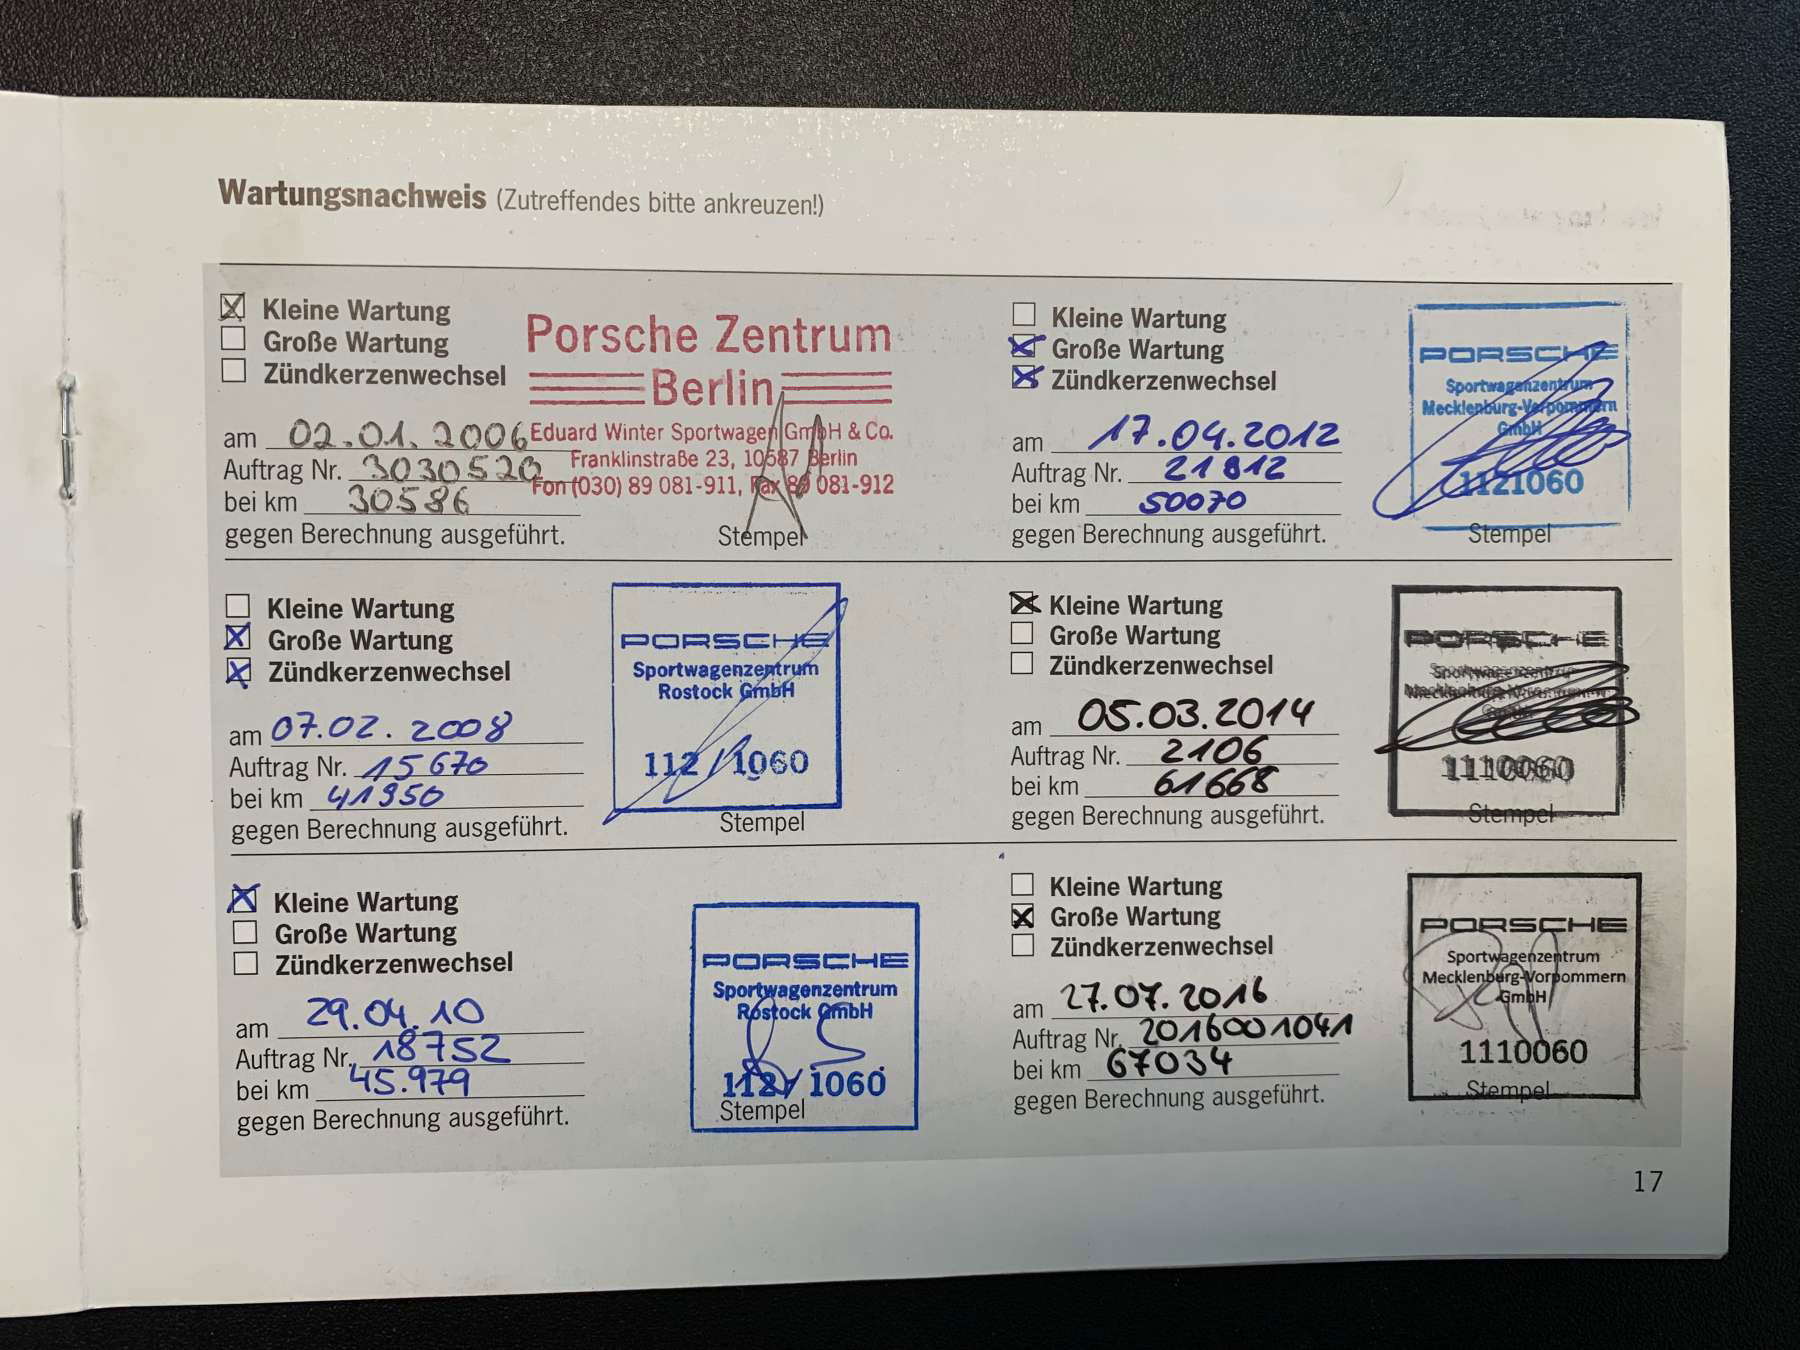 Wartungsnachweis (Zutreffendes bitte ankreuzen!)
Kleine Wartung
Große Wartung
Zündkerzenwechsel
am 02.01.2006
Auftrag Nr. 3030520
bei km 30586
gegen Berechnung ausgeführt.
Porsche Zentrum
Berlin
Eduard Winter Sportwagen GmbH & Co.
Franklinstraße 23, 10587 Berlin
Fon (030) 89 081-911, Fax 89 081-912
Stempel
Kleine Wartung
Große Wartung
Zündkerzenwechsel
am 07.02.2008
Auftrag Nr. 15670
bei km 41950
gegen Berechnung ausgeführt.
PORSCHE
Sportwagenzentrum
Rostock GmbH
112 / 1060
Stempel
Kleine Wartung
Große Wartung
Zündkerzenwechsel
am 29.04.10
Auftrag Nr. 18752
bei km 45.979
gegen Berechnung ausgeführt.
PORSCHE
Sportwagenzentrum
Rostock GmbH
112 / 1060
Stempel
Kleine Wartung
Große Wartung
Zündkerzenwechsel
am 17.04.2012
Auftrag Nr. 21812
bei km 50070
gegen Berechnung ausgeführt.
PORSCHE
Sportwagenzentrum
Mecklenburg-Vorpommern
GmbH
1121060
Stempel
Kleine Wartung
Große Wartung
Zündkerzenwechsel
am 05.03.2014
Auftrag Nr. 2106
bei km 61668
gegen Berechnung ausgeführt.
PORSCHE
Sportwagenzentrum
Mecklenburg-Vorpommern
GmbH
1110060
Stempel
Kleine Wartung
Große Wartung
Zündkerzenwechsel
am 27.07.2016
Auftrag Nr. 2016001041
bei km 67034
gegen Berechnung ausgeführt.
PORSCHE
Sportwagenzentrum
Mecklenburg-Vorpommern
GmbH
1110060
Stempel
17